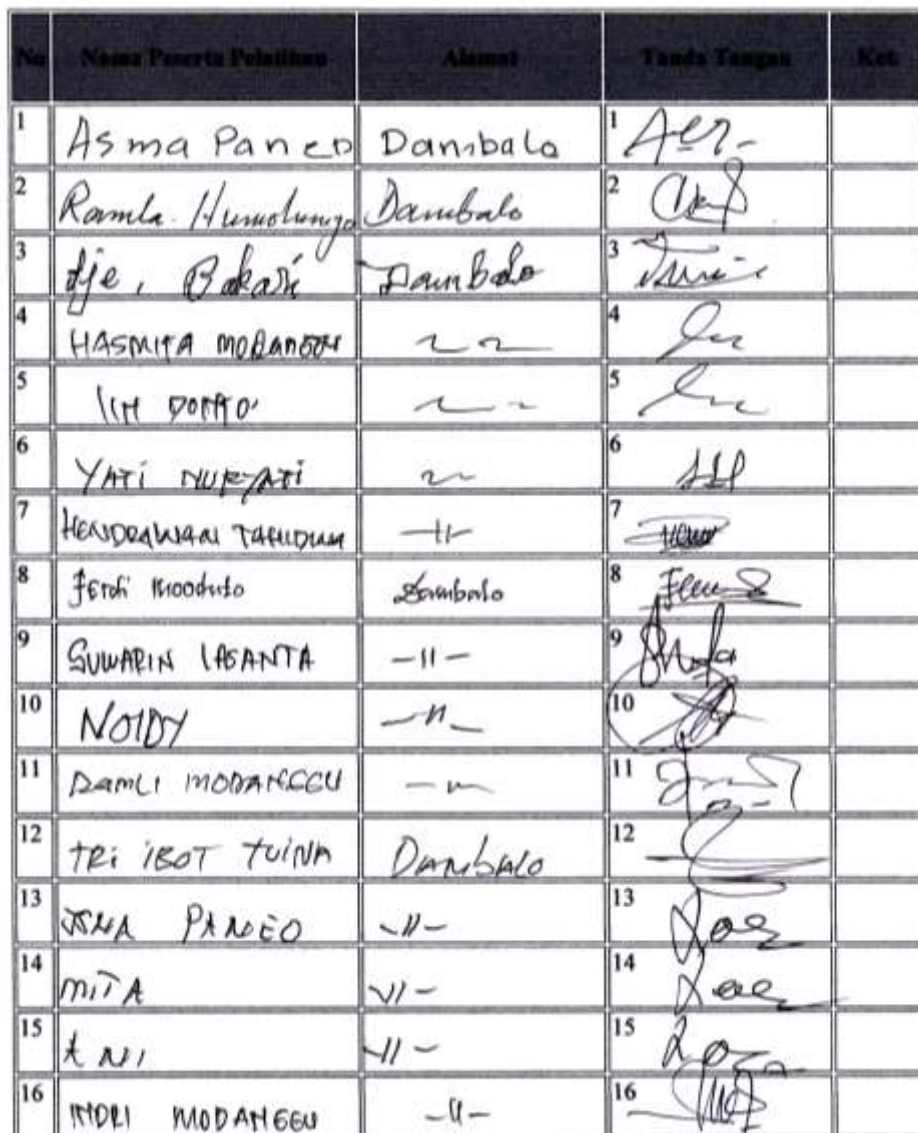 No Nama Peserta Pelatihan Alamat Tanda Tangan Ket.
1 Asma Paneo Dambalo 1
2 Ramla Humolungo Dambalo 2
3 Bakari Dambalo 3
4 HASMITA MODANGGU 4
5 IIN 5
6 YATI NURYATI 6
7 HENDRAWAN -11- 7
8 Ferdi Mooduto Dambalo 8
9 SUWARIN LASANTA -11- 9
10 NOIDY -11- 10
11 RAMLI MODANGGU 11
12 TRI IBOT TUINA DAMBALO 12
13 PANEO -11- 13
14 MITA -11- 14
15 ANI -11- 15
16 INDRI MODANGGU -11- 16